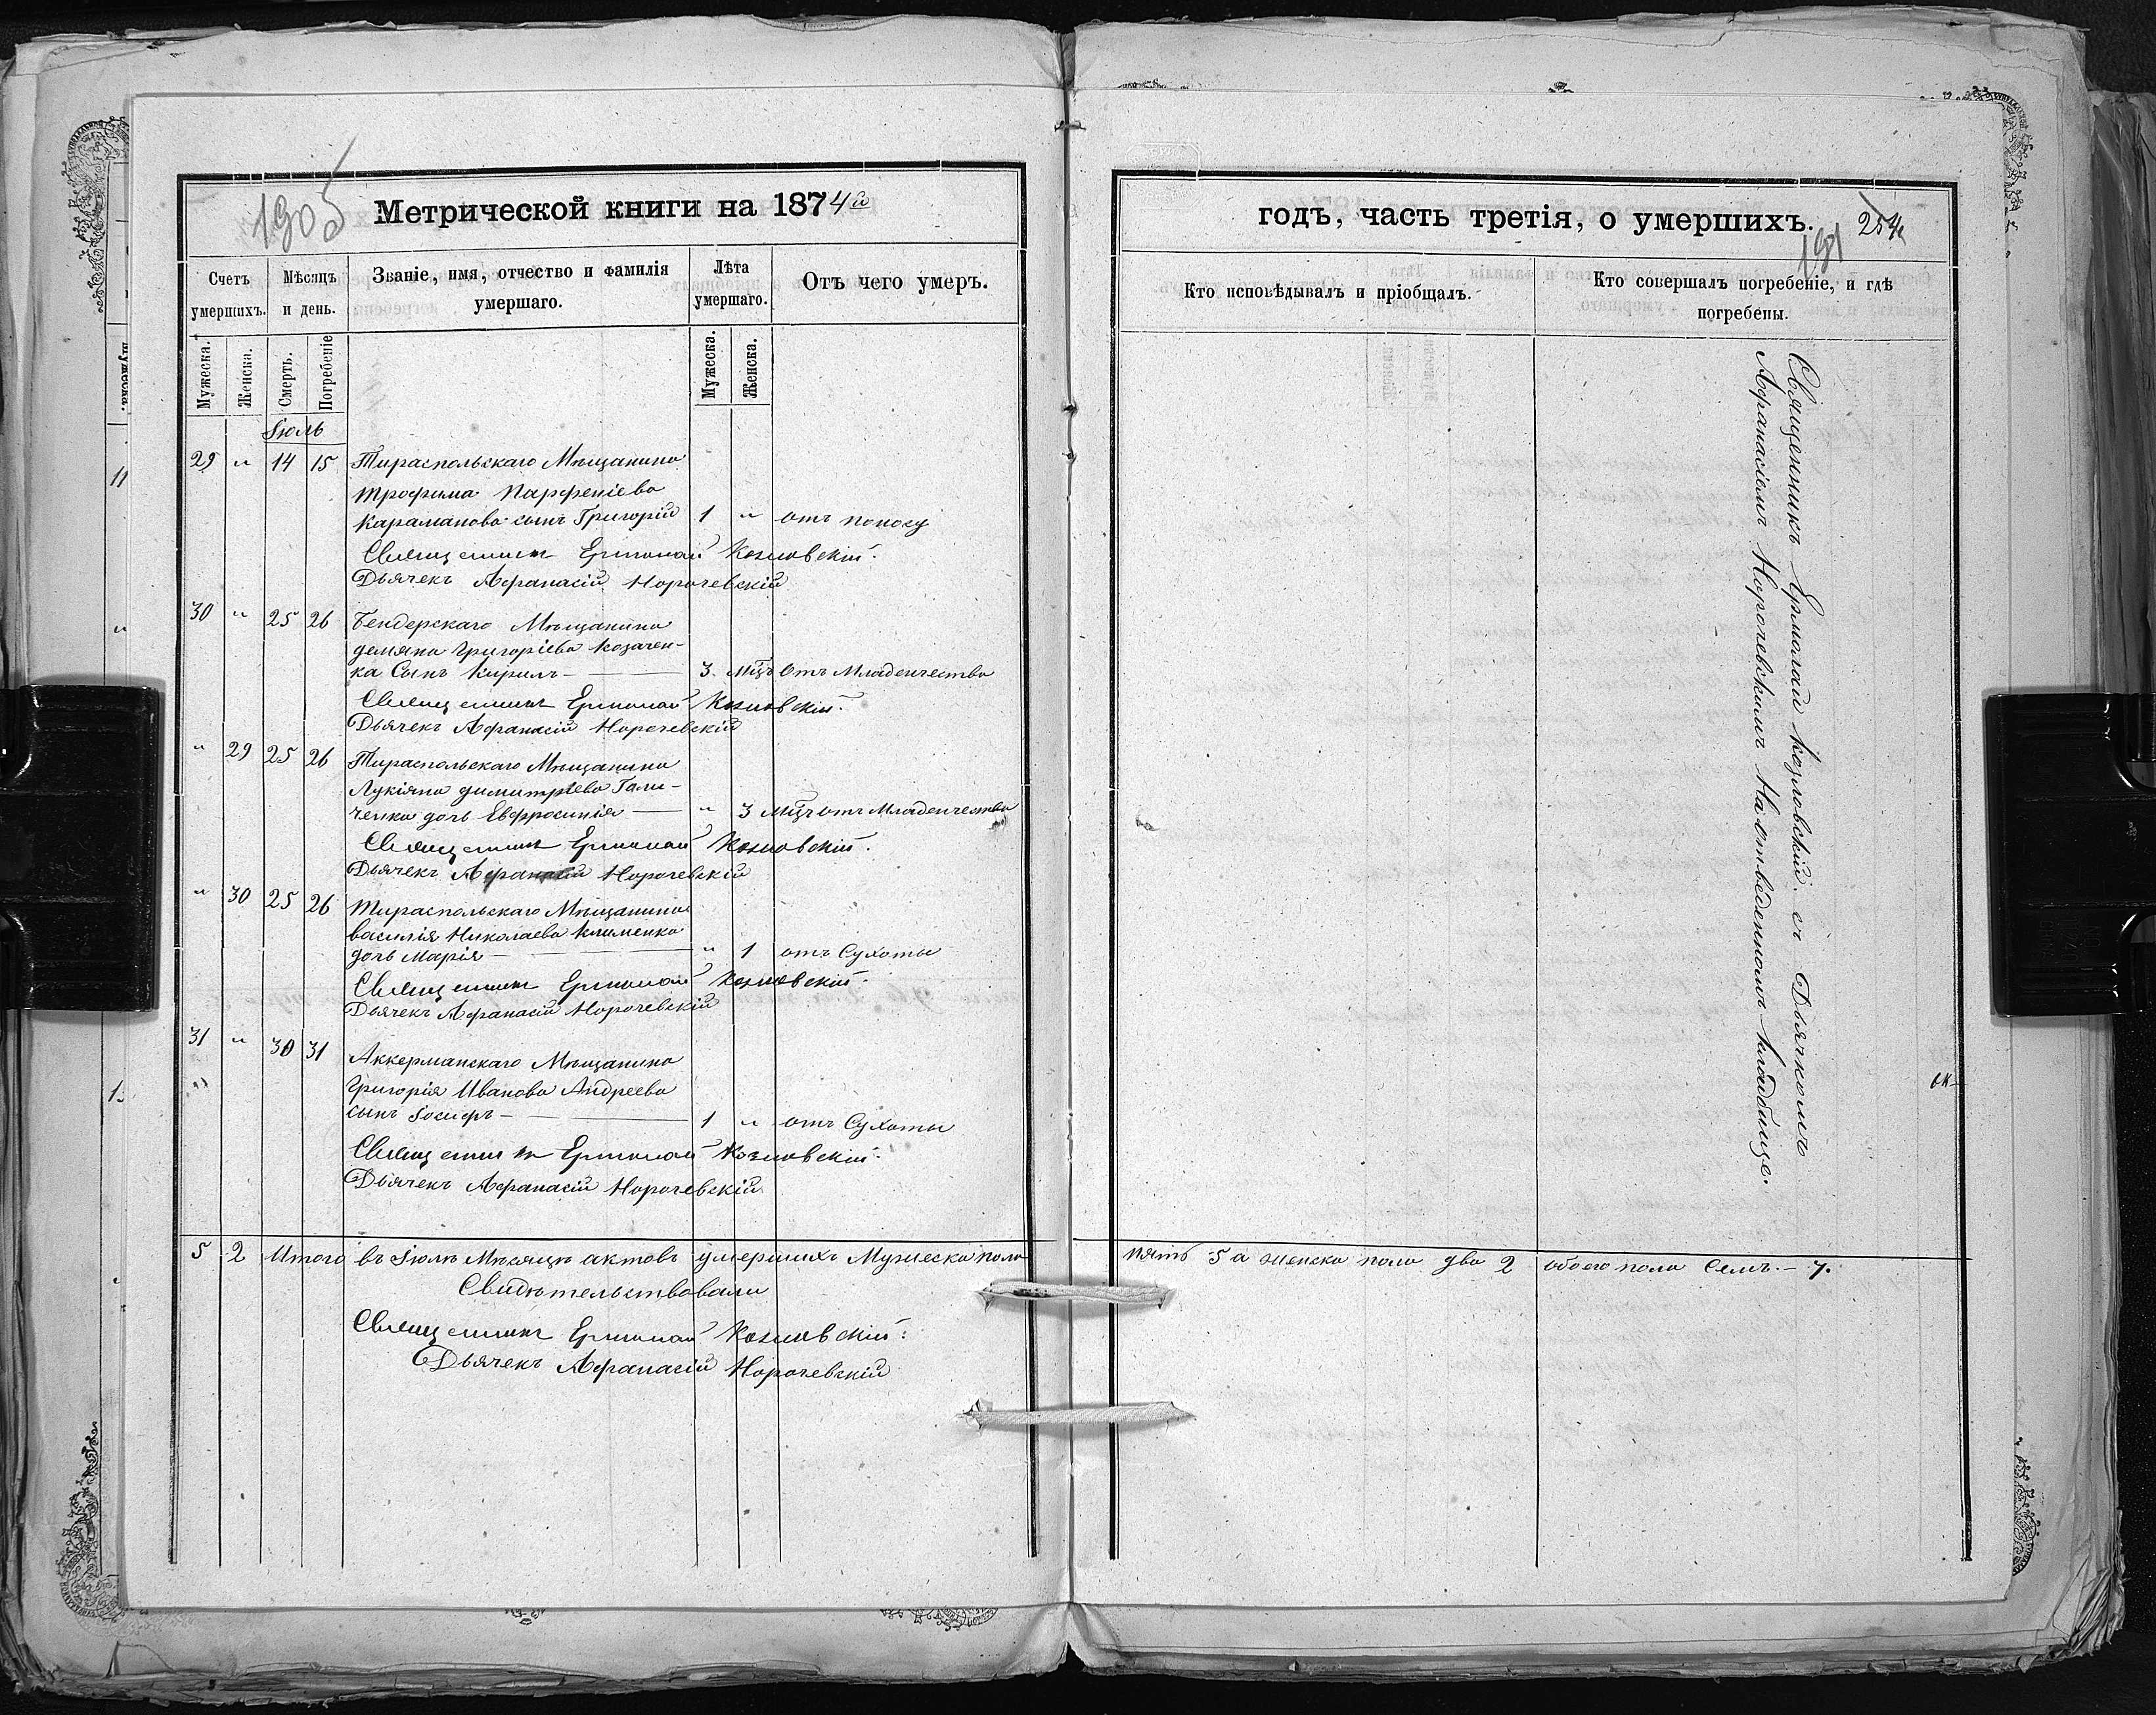 1905
Метрической книги на 1874й
Счетъ умершихъ.
Мѣсяцъ и день.
Званіе, имя, отчество и фамилія умершаго.
Лѣта умершаго.
Отъ чего умеръ.
Мужеска.
Женска.
Смерть.
Погребеніе
Мужеска.
Женска.
Іюль
29 " 14 15 Тираспольскаго Мѣщанина
Трофима Парфеніева
Караманова сынъ Григорій 1 " отъ поносу
Священникъ Ермолай Козловскій.
Дьячекъ Афанасій Норочевскій
30 " 25 26 Бендерскаго Мѣщанина
Демяна Григоріева Козачен-
ка Сынъ Кирилъ — 3 мцъ Отъ Младенчества
Священникъ Ермолай Козловскій.
Дьячекъ Афанасій Норочевскій
" 29 25 26 Тираспольскаго Мѣщанина
Лукіяна Димитріева Гали-
ченка дочь Евфросинія — " 3 мцъ отъ Младенчества
Священникъ Ермолай Козловскій.
Дьячекъ Афанасій Норочевскій
" 30 25 26 Тираспольскаго Мѣщанина
Василія Николаева Клименка
дочь Марія — " 1 отъ Сухоты
Священникъ Ермолай Козловскій.
Дьячекъ Афанасій Норочевскій
31 " 30 31 Аккерманскаго Мѣщанина
Григорія Иванова Андреева
сынъ Іосифъ — 1 " отъ Сухоты
Священникъ Ермолай Козловскій.
Дьячекъ Афанасій Норочевскій
5 2 Итого въ Іюлѣ Мѣсяцѣ актовъ умершихъ Мужеска пола
Свидѣтельствовали
Священникъ Ермолай Козловскій:
Дьячекъ Афанасій Норочевскій
годъ, часть третія, о умершихъ.
254
191
Кто исповѣдывалъ и пріобщалъ.
Кто совершалъ погребеніе, и гдѣ погребены.
Священникъ Ермолай Козловскій. съ Дьячкомъ
Афанасіемъ Норочевскимъ На отведенномъ кладбище.
пять 5 а женска пола два 2 обоего пола Семъ. — 7.